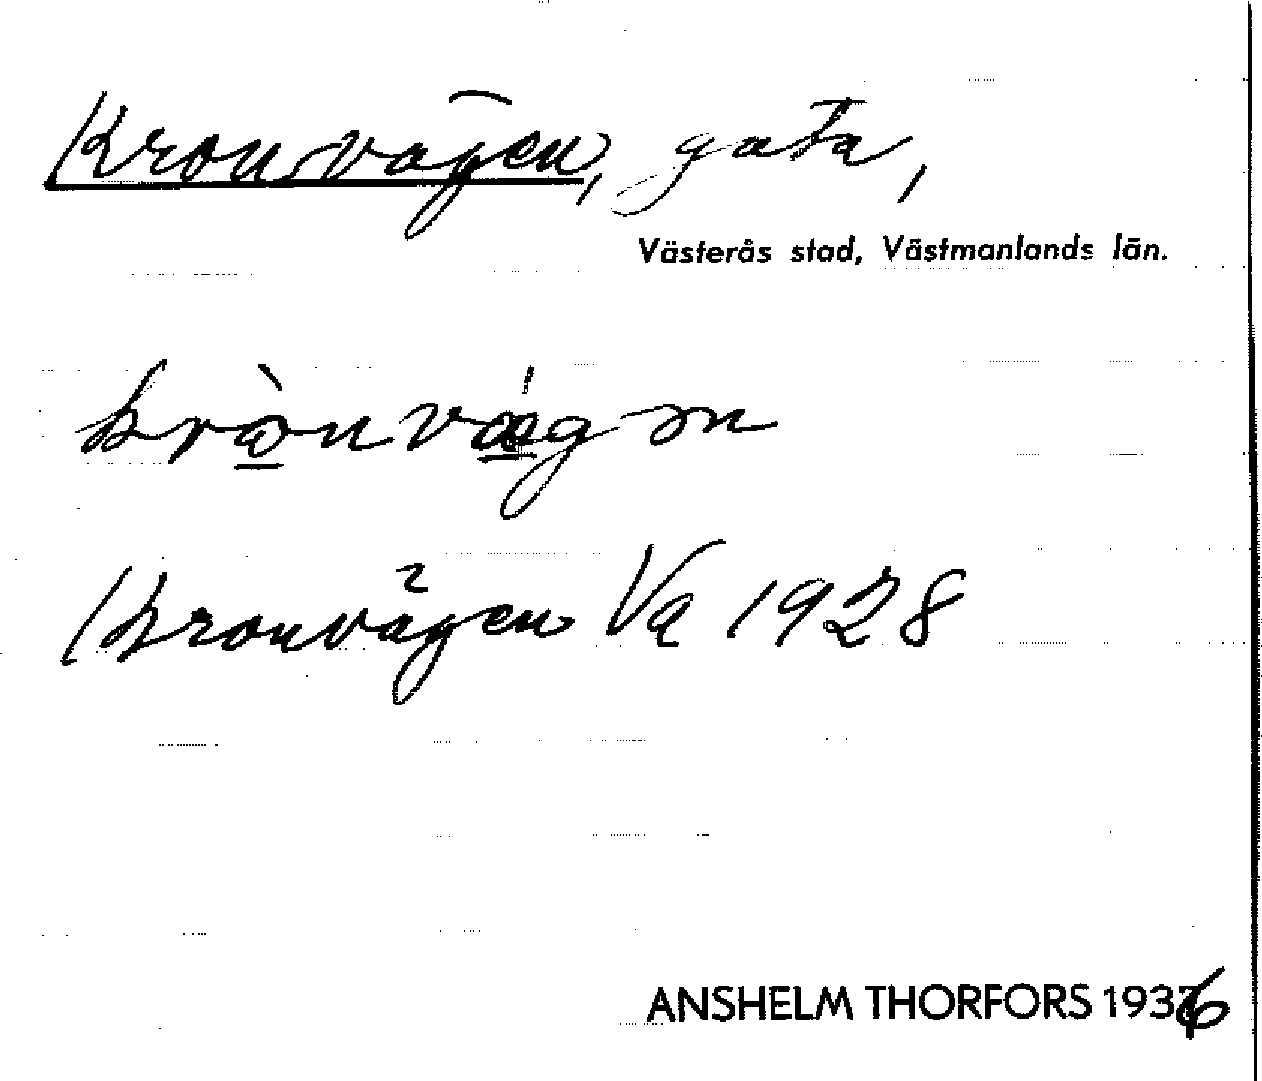 Kronvägen, gata,
Västerås stad, Västmanlands län.
Kronvägen Va 1928
ANSHELM THORFORS 1936